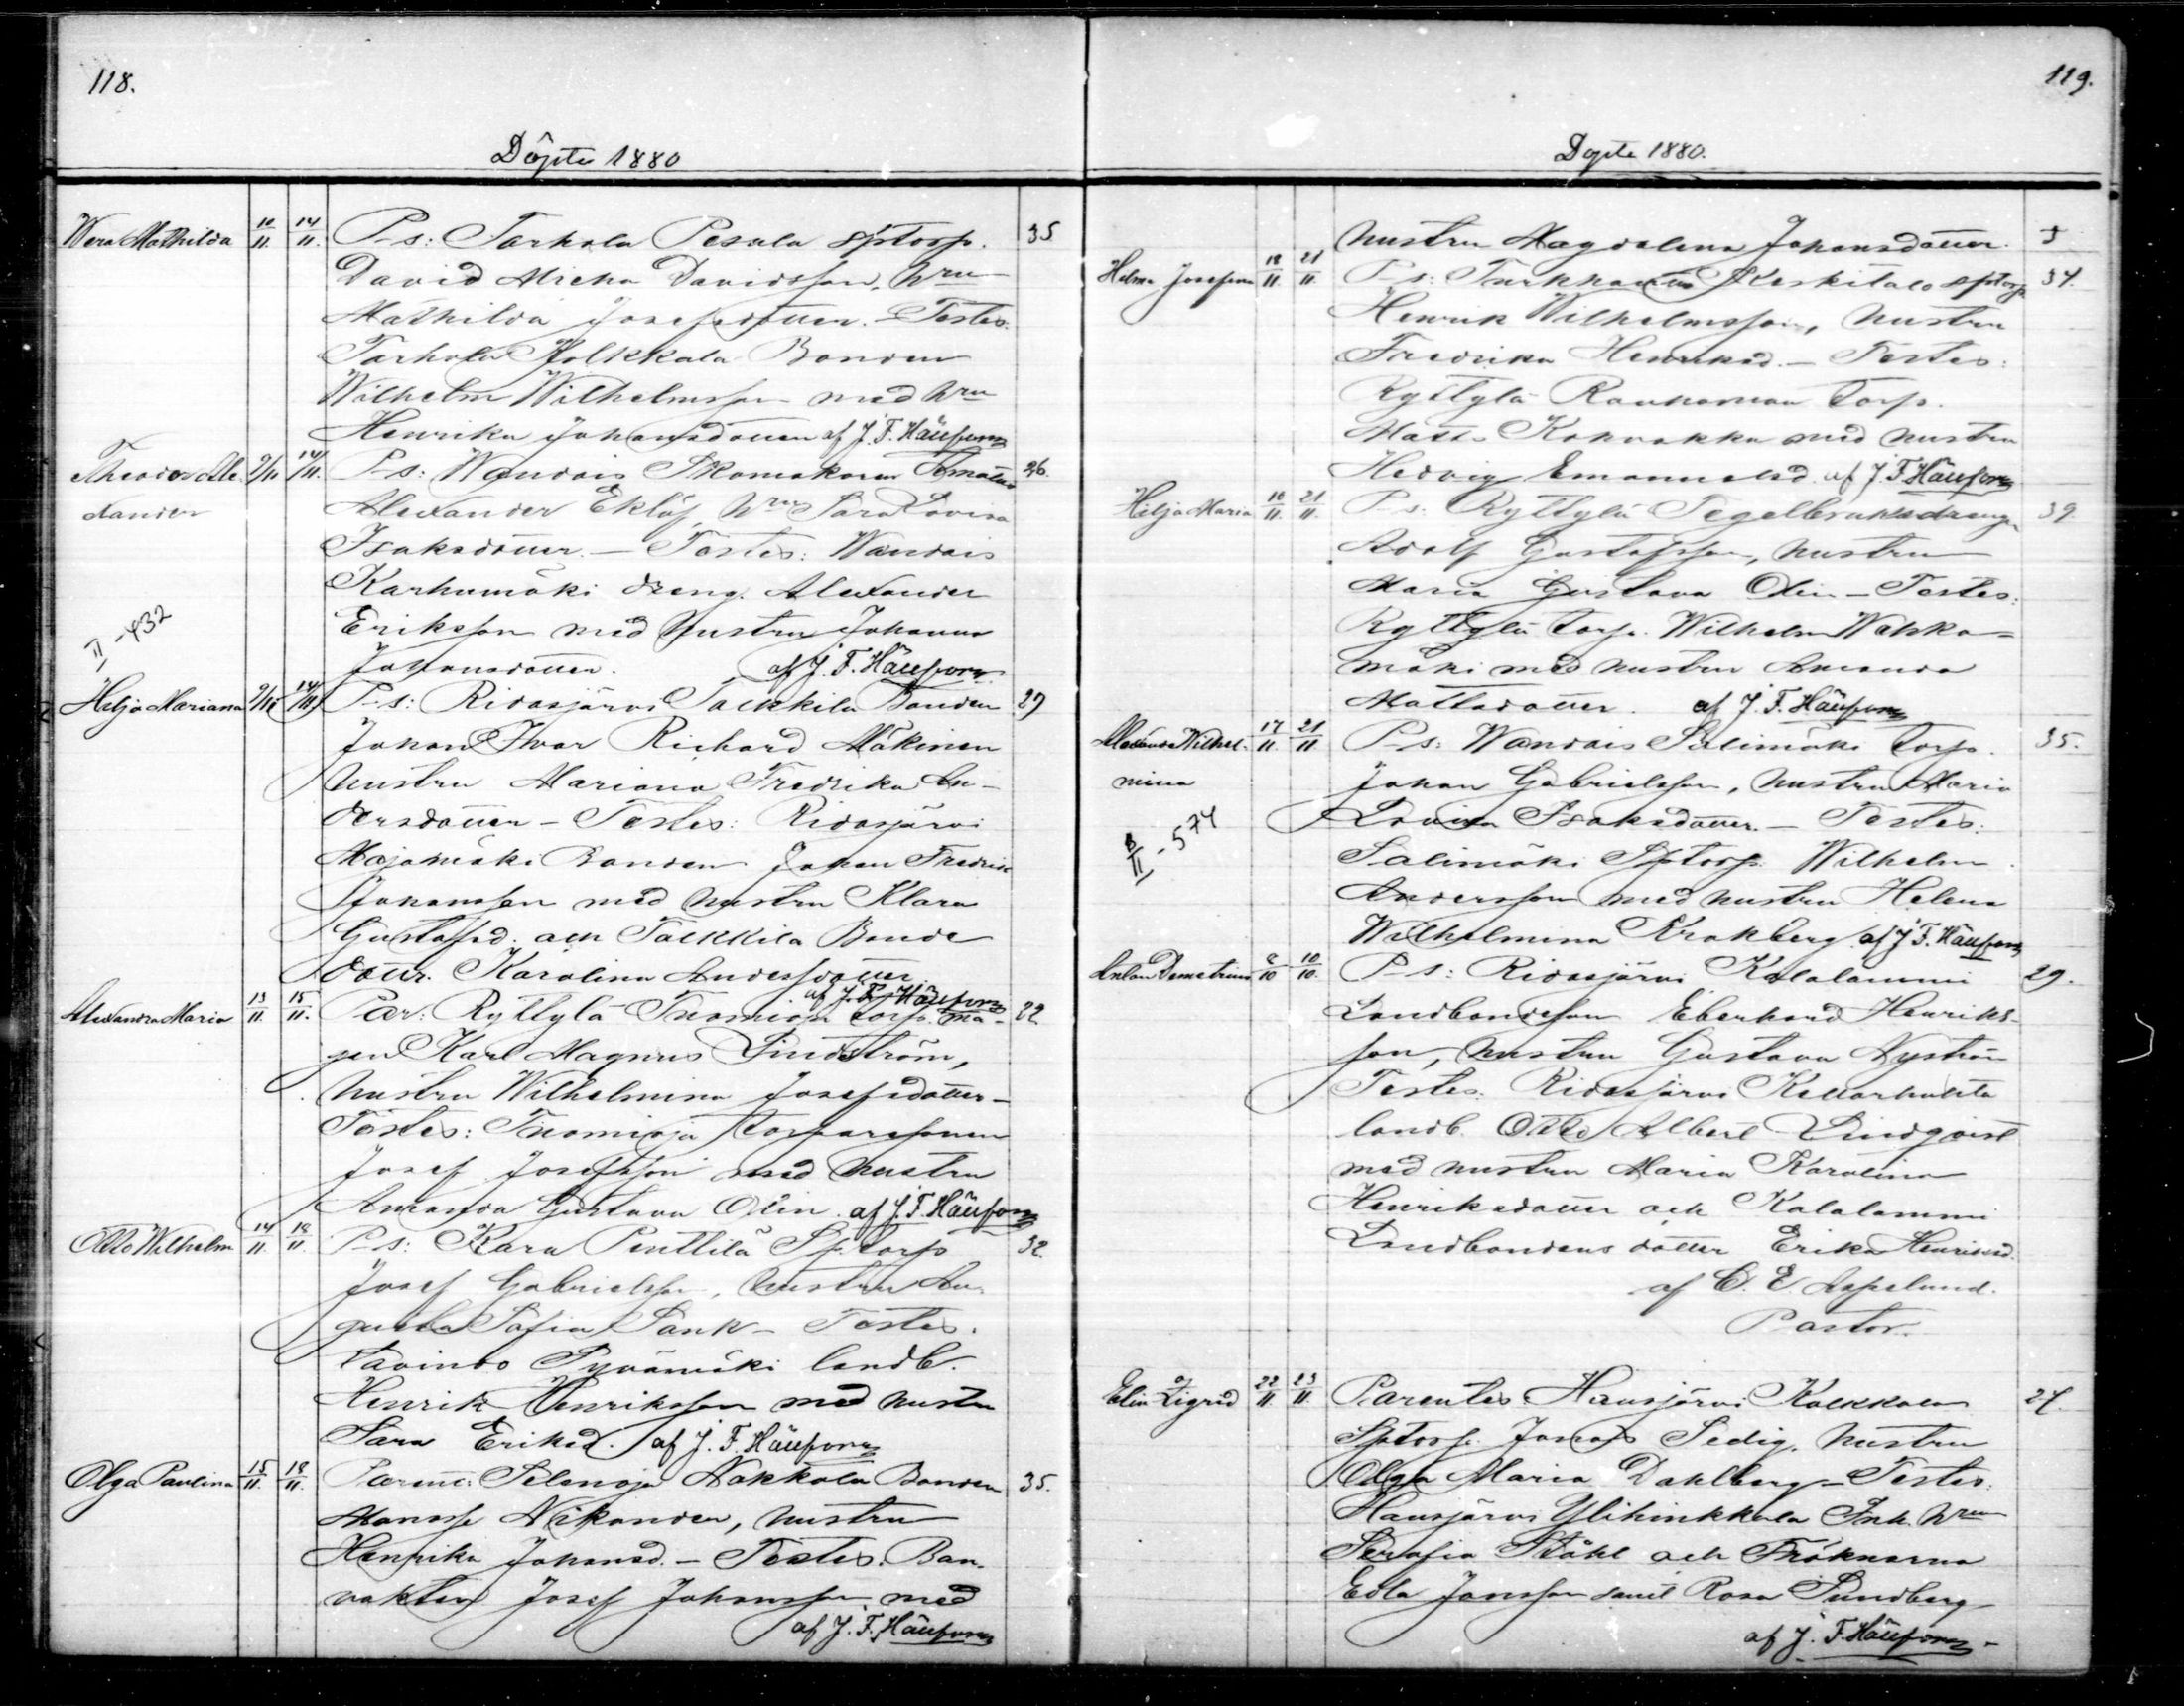 118.
Döpte 1880
Wera Mathilda 10/11. 14/11. P-s: Tarhola Pesala sptorp. 35
David Micko Davidsson, hru
Mathilda Josefsdotter. - Testes:
Tarhola Bonden
Wilhelm Wilhelmsson med hru
Henrika Johansdotter af J. F. Häufsons
Theodor Ale 9/11 14/11. P-s: Wandais Skomakaren 26.
xander Alexander Eklöf, hru Sara Lovisa
Isaksdotter. - Testes: Wandais
Karhumäki dreng. Alexander
Eriksson med hustru Johanna
II - 432
Johansdotter. af J. F. Häufsons
Hilja Mariana 9/11 14/11 P-s: Ridasjärvi Bonden 27
Johan Ivar Richard Mäkinen
hustru Mariana Fredrika An-
dersdotter - Testes: Ridasjärvi
Majamäki Bonden Johan Fredrik
Johansson med hustru Klara
Gustafsd. och Bonde
dottr. Karolina Andersdotter
af J. F. Häufsons
Alexandra Maria 13/11. 15/11. Par: Ryttylä Tuomioja torp. må- 22
gen Karl Magnus Lindström,
hustru Wilhelmina Josefsdotter -
Testes: Tuomioja torparesonen
Josef Josefsson med hustru
Amanda Gustava Odin. af J. F. Häufsons
Otto Wilhelm 14/11. 18/11. P-s: Kara Penttilä Sptorp 32
Josef Gabrielsson, hustru Au-
gusta Sofia Lank - Testes.
landb.
Henrik Henriksson med hustru
Sara Eriksd. af J. F. Häufsons
Olga Paulina 15/11. 18/11. Selänoja Nakkola Bonden 35.
Manasse Nikander, hustru
Henrika Johansd. - Testes: Ban-
vakten Josef Johansson med
af J. F. Häufsons
119.
Döpte 1880.
hustru Magdalena Johansdotter.
Helma Josefina 18/11. 21/11. P-s: Turkhauta Keskitalo sptorp 34.
Henrik Wilhelmsson, hustru
Fredrika Henriksd. - Testes:
Ryttylä Rauhamaa torp.
Matts Kokvakka med hustru
Hedvig Emanuelsd. af J. F. Häufsons
Hilja Maria 18/11. 21/11. P-s: Ryttylä Tegelbruksdreng 39
Adolf Gustafsson, hustru
Maria Gustava Odin - Testes:
Ryttylä torp. Wilhelm Wahka-
mäki med hustru Amanda
Mattsdotter. af J. F. Häufsons
Alexandra Wilhel- 17/11. 21/11 P-s: Wandais Salimäki torp. 35.
mina Johan Gabrielsson, hustru Maria
Lovisa Isaksdotter. - Testes:
B/II - 574
Salimäki Sptorp. Wilhelm
Andersson med hustru Helena
Wilhelmina Krakberg af J. F. Häufsons
Anton Demetrius 8/10 10/10. P-s: Ridasjärvi Kalalammi 29.
Landbondeson Eberhard Henriks-
son, hustru Gustava Nyström
Testes. Ridasjärvi Kellarhuhta
landb. Otto Albert Lindqvist
med hustru Maria Karolina
Henriksdotter och Kalalammi
Landbondens dotter Erika Henriksd.
af C. E. Aspelund.
Pastor.
Elin Sigrid 22/11. 23/11. Parentes Hausjärvi Kalkkola 27.
Sptorp. Jonas Sedig, hustru
Olga Maria Dahlberg - Testes:
Hausjärvi Ylihinkkala Inh. hru
Serafia Ståhl och Fröknarna
Edla Jansson samt Rosa Sundberg
af J. F. Häufsons -